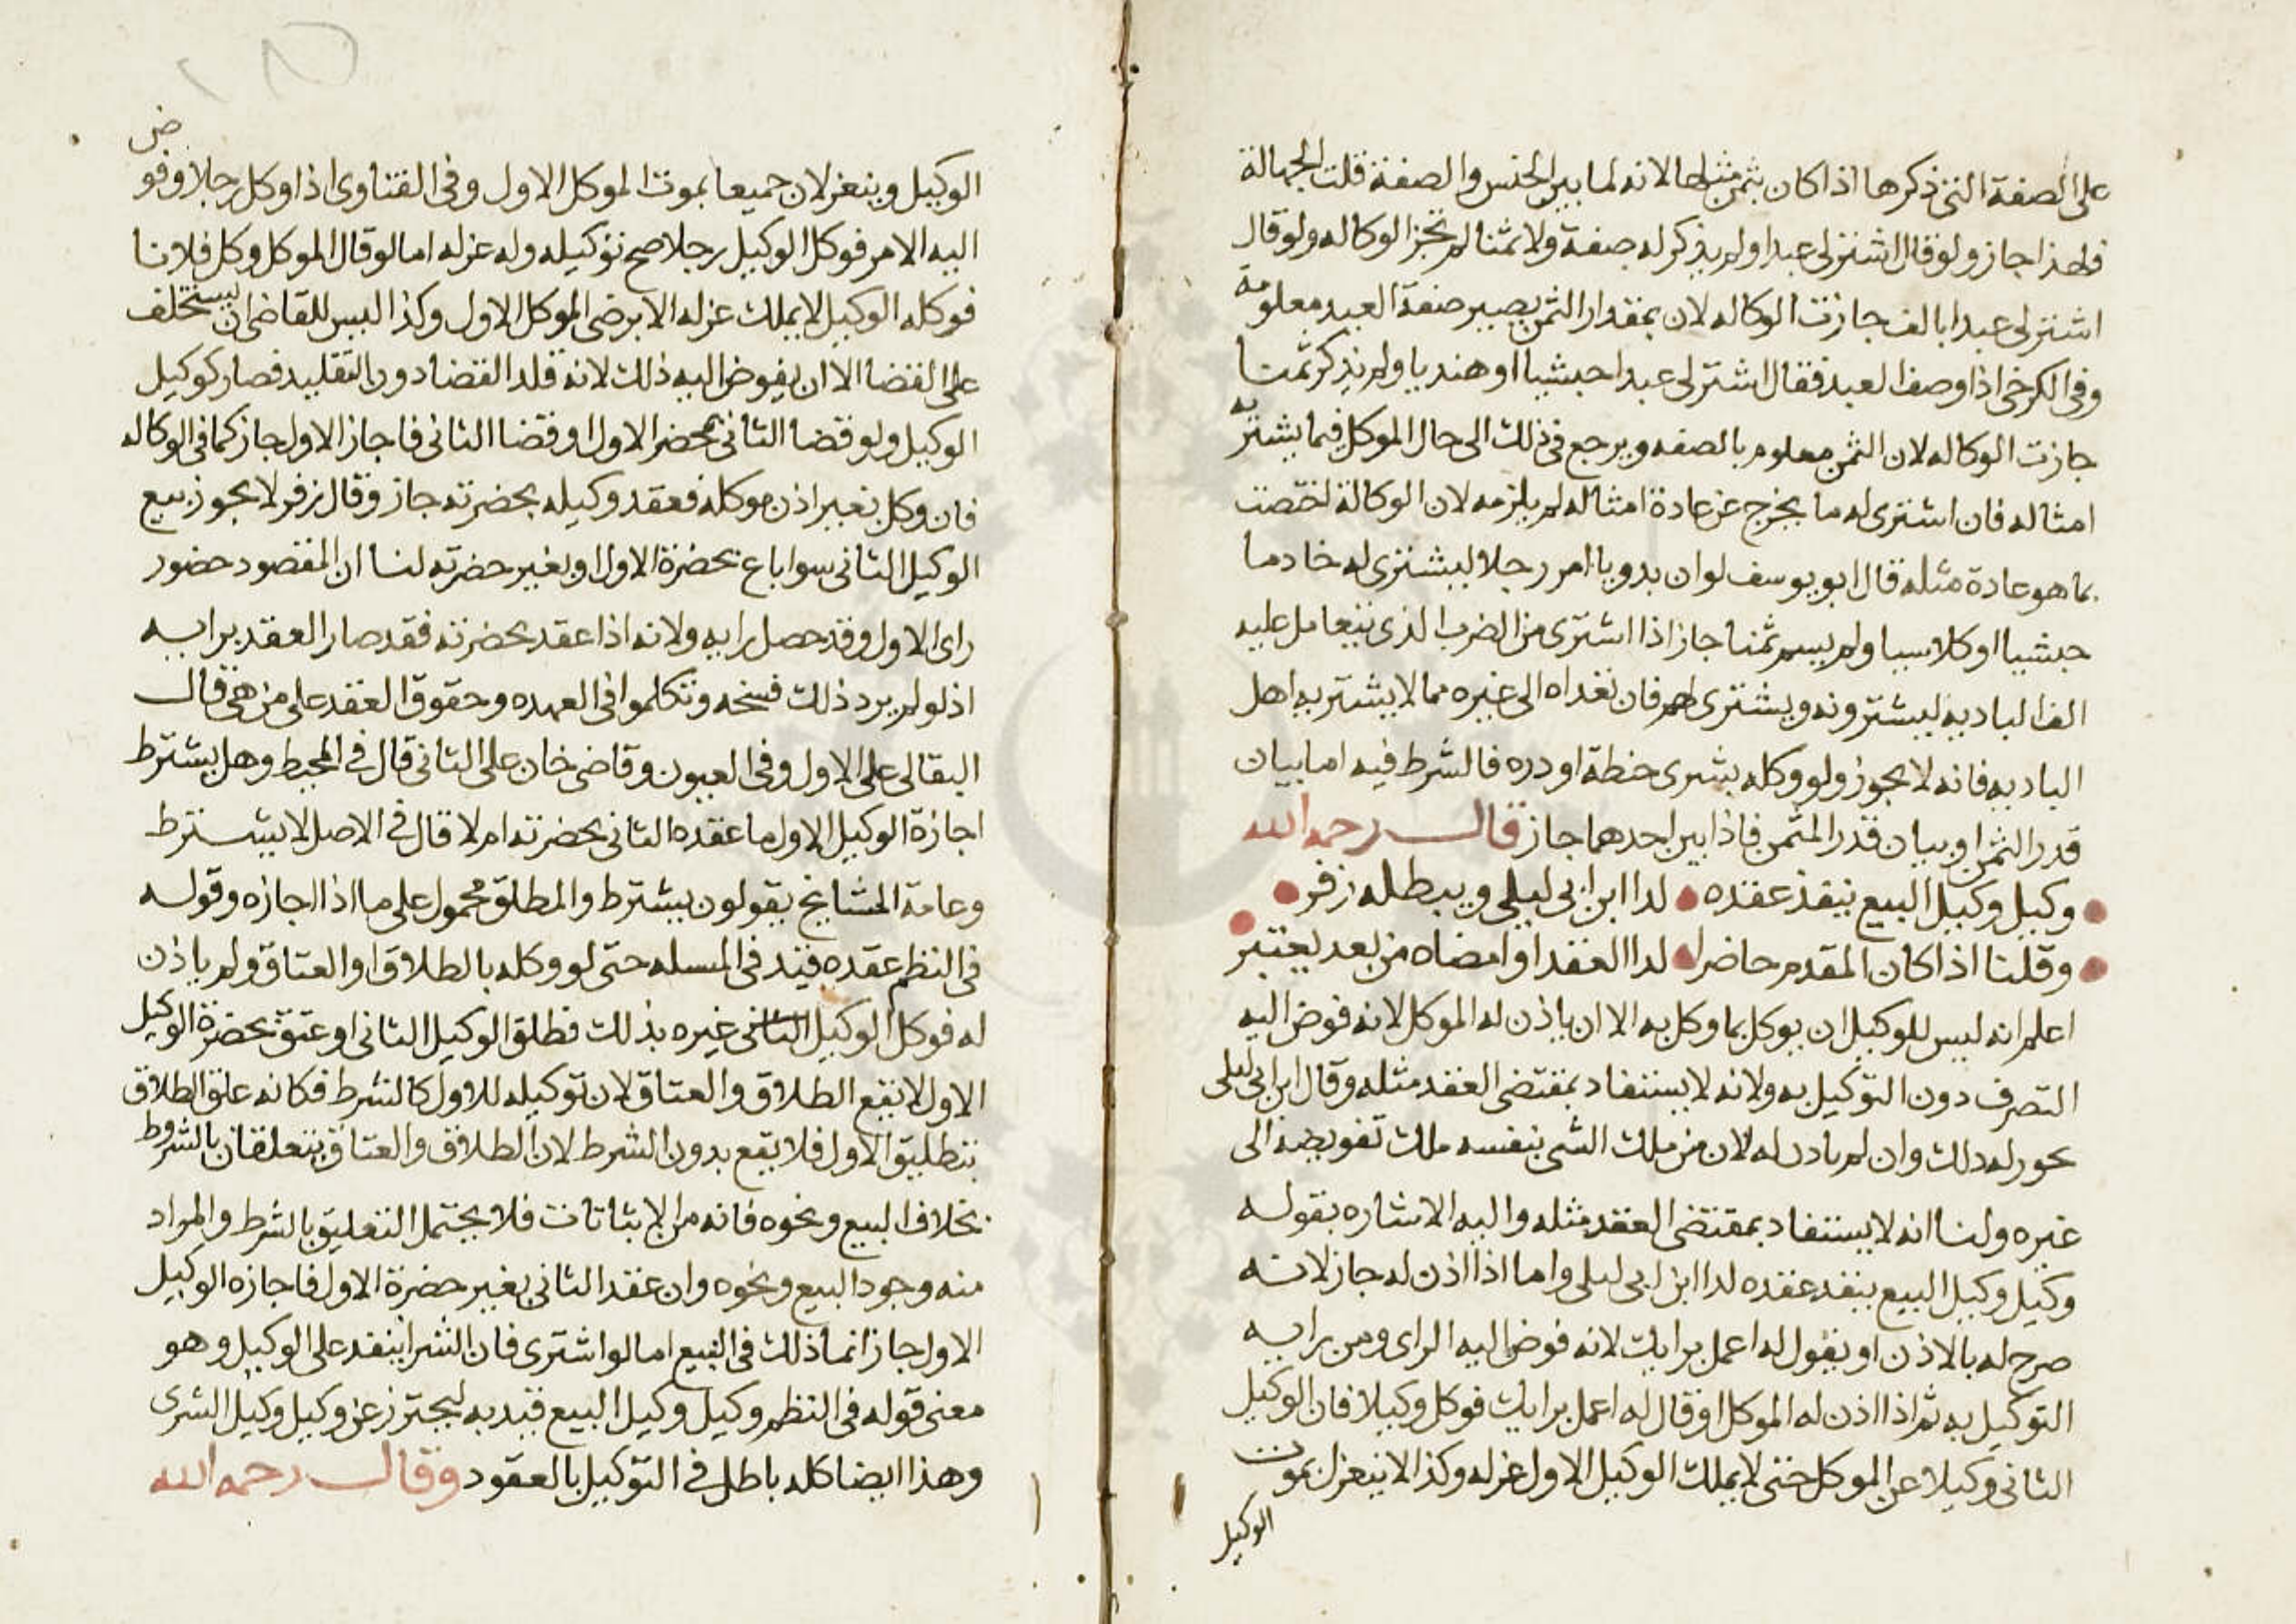 على الصفة التي ذكرها اذا كان بثمن مثلها لانه لما بين الجنس والصفة قلت الجهالة
فلهذا جاز ولو قال اشتر لي عبدا ولم يذكر له صفة ولا ثمنا لم تجز الوكاله ولو قال
اشتر لي عبدا بالف جازت الوكاله لان بمقدار الثمن يصير صفة العبد معلومة
وفي الكرخي اذا وصف العبد فقال اشتر لي عبدا حبشيا او هنديا ولم يذكر ثمنا
جازت الوكاله لان الثمن معلوم بالصفه ويرجع في ذلك الى حال الموكل فيما يشتريه
امثاله فان اشترى له ما يخرج عن عادة امثاله لم يلزمه لان الوكالة اختصت
بما هو عادة مثله قال ابو يوسف لو ان بدويا امر رجلا ليشتري له خادما
حبشيا او كلاسيا ولم يسم ثمنا جاز اذا اشترى من الضرب الذي يتعامل عليه
الف الباديه ليشترونه ويشترى لهم فان تعداه الى غيره مما لا يشتريه اهل
الباديه فانه لا يجوز ولو وكله بشرى حنطة او دره فالشرط فيه اما بيان
قدر الثمن او بيان قدر المثمن فاذا بين احدهما جاز قال رحمه الله
وكيل وكيل البيع ينفذ عقده لدا ابن ابي ليلى ويبطله زفر
وقلنا اذا كان المقدم حاضرا لدا العقد او امضاه من بعد يعتبر
اعلم انه ليس للوكيل ان يوكل بما وكل به الا ان ياذن له الموكل لانه فوض اليه
التصرف دون التوكيل به ولانه لا يستفاد بمقتضى العقد مثله وقال ابن ابي ليلى
يحور له دلك وان لم يادن له لان من ملك الشي بنفسه ملك تفويضه الى
غيره ولنا انه لا يستفاد بمقتضى العقد مثله واليه الاشاره بقوله
وكيل وكيل البيع ينفد عقده لدا ابن ابي ليلى واما اذا اذن له جاز لانه
صرح له بالاذن او يقول له اعمل برايك لانه فوض اليه الراى ومن برايه
التوكيل به ثم اذا اذن له الموكل او قال له اعمل برايك فوكل وكيلا فان الوكيل
الثاني وكيلا عن الموكل حتى لا يملك الوكيل الاول عزله وكذا لا ينعزل بموت
الوكيل
الوكيل وينعزلان جميعا بموت الموكل الاول وفي الفتاوى اذا وكل رجلا وفوض
اليه الامر فوكل الوكيل رجلا صح توكيله وله عزله اما لو قال الموكل وكل فلانا
فوكله الوكيل لا يملك عزله الا برضى الموكل الاول وكذا ليس للقاضي ان يستخلف
على القضا الا ان يفوض اليه ذلك لانه قلد القضا دون التقليد فصار كوكيل
الوكيل ولو قضا الثاني بمحضر الاول او قضا الثاني فاجاز الاول جاز كما في الوكاله
فان وكل بغير اذن موكله فعقد وكيله بحضرته جاز وقال زفر لا يجوز بيع
الوكيل الثاني سوا باع بحضرة الاول او بغير حضرته لنا ان المقصود حضور
راى الاول وقد حصل رايه ولانه اذا عقد بحضرته فقد صار العقد برايه
اذ لو لم يرد ذلك فسخه وتكلموا في العهده وحقوق العقد على من هي قال
البقالي على الاول وفي العيون وقاضي خان على الثاني قال في المحيط وهل يشترط
اجازة الوكيل الاول ما عقده الثاني بحضرته ام لا قال في الاصل لا يشترط
وعامة المشايخ يقولون يشترط والمطلق محمول على ما اذا اجازه وقوله
في النظم عقده قيد في المسله حتى لو وكله بالطلاق او العتاق ولم ياذن
له فوكل الوكيل الثاني غيره بذلك فطلق الوكيل الثاني او عتق بحضرة الوكيل
الاول لا يقع الطلاق والعتاق لان توكيله للاول كالشرط فكانه علق الطلاق
بتطليق الاول فلا يقع بدون الشرط لان الطلاق والعتاق يتعلقان بالشروط
بخلاف البيع ونحوه فانه من الاثباتات فلا يحتمل التعليق بالشرط والمراد
منه وجود البيع ونحوه وان عقد الثاني بغير حضرة الاول فاجازه الوكيل
الاول جاز انما ذلك في البيع اما لو اشترى فان الشرا ينفد على الوكيل وهو
معنى قوله في النظم وكيل وكيل البيع قيد به ليحترز عن وكيل وكيل الشرى
وهذا ايضا كله باطل في التوكيل بالعقود وقال رحمه الله